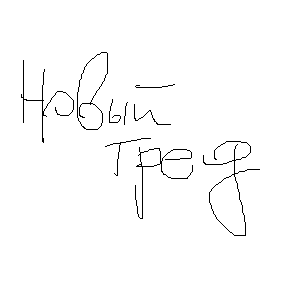 Новый
тред